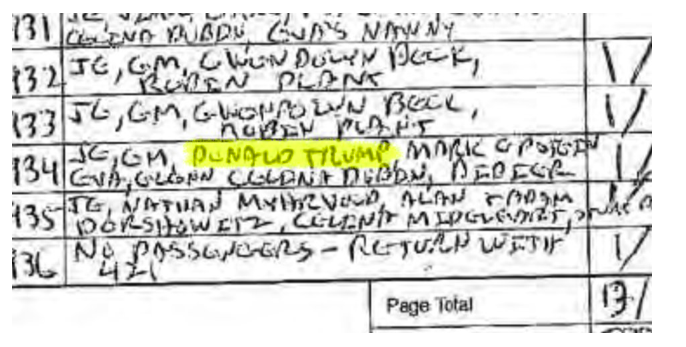 131
CELINA DUBIN, EVA'S NANNY
132 JE, GM, GWENDOLYN BECK, 1/
ROBIN PLANT
133 JE, GM, GWENDOLYN BECK, 1/
ROBIN PLANT
134 JE, GM, DONALD TRUMP, MARK EPSTEIN 1/
EVA, GLENN CELINA DUBIN, DIDIER
135 JE, NATHAN MYHRVOLD, ALAN 1/
DERSHOWITZ, CELINA
136 NO PASSENGERS - RETURN WITH 1/
421
Page Total 13/